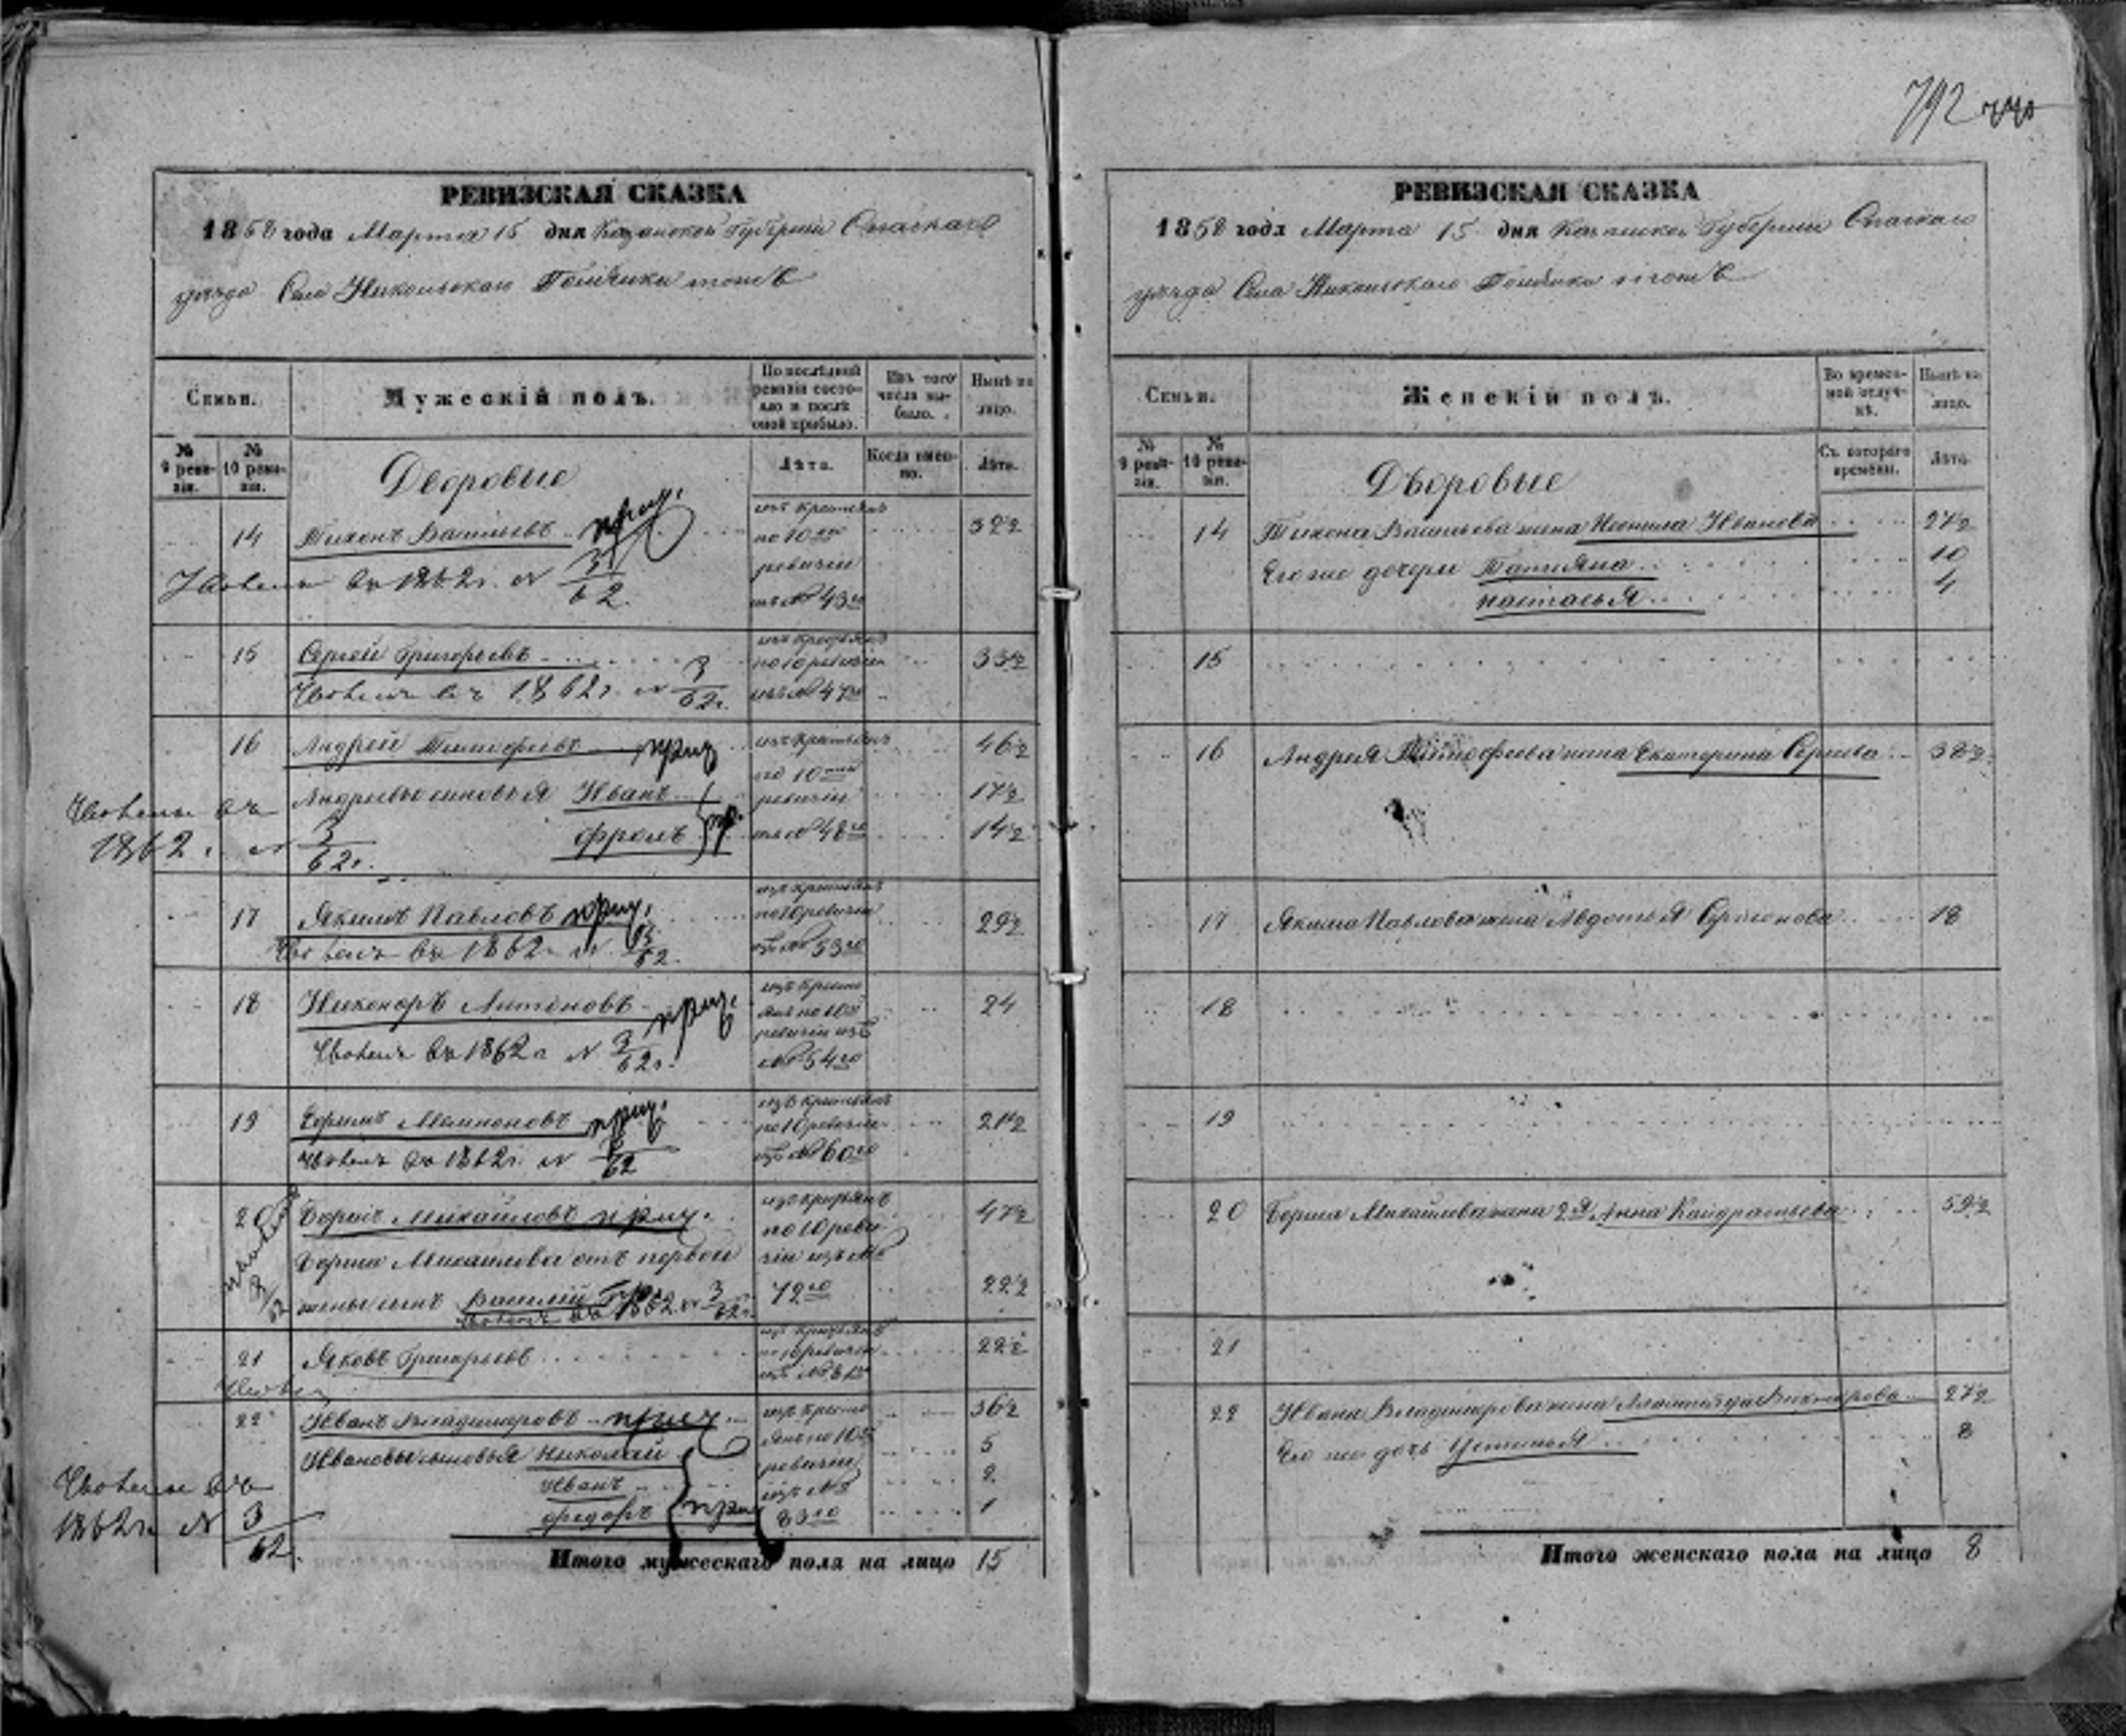 792
РЕВИЗСКАЯ СКАЗКА
1858 года Марта 15 дня Казанской Губернии Спаскаго
уезда Села Никольскаго
Семьи.
Мужескій полъ.
По послѣдней ревизіи состояло и послѣ оной прибыло.
Изъ того числа выбыло.
Нынѣ на лицо.
№ 9 ревизіи.
№ 10 ревизіи.
Дворовые
Лѣта.
Когда именно.
Лѣта.
14 Тихонъ Васильевъ изъ крестьянъ по 10й ревизіи изъ № 43го 32½
въ 1862г. № 3/62.
15 Сергей Григорьевъ изъ крестьянъ по 10 ревизіи изъ № 47го 33½
въ 1862г. № 3/62г.
16 Андрей Тимофеевъ изъ крестьянъ 46½
Андреевы сыновья Иванъ по 10й ревизіи 17½
Фролъ изъ № 48го 14½
въ 1862. № 3/62г.
17 Якимъ Павловъ изъ крестьянъ по 10 ревизіи изъ № 53го 29½
въ 1862г. № 3/62.
18 Никоноръ Антоновъ изъ крестьянъ по 10й ревизіи изъ № 54го 24
въ 1862г № 3/62г.
19 Мемноновъ изъ крестьянъ по 10 ревизіи изъ № 60го 21½
въ 1862г. № 3/62
20 Борисъ Михайловъ изъ крестьянъ 47½
Бориса Михайлова отъ первой по 10 ревизіи изъ №
жены сынъ Василий 72го 22½
въ 1862 № 3/62г.
21 Яковъ Григорьевъ изъ крестьянъ по 10 ревизіи 22½
22 Иванъ Владимировъ изъ крестьянъ по 10й 36½
Ивановы сыновья Николай ревизіи 5
Иванъ изъ № 2
Федоръ 83го 1
въ 1862г. № 3/62.
Итого мужескаго пола на лицо 15
РЕВИЗСКАЯ СКАЗКА
1858 года Марта 15 дня Казанской Губернии Спаскаго
уезда Села Никольскаго
Семьи.
Женскій полъ.
Во временной отлучкѣ.
Нынѣ на лицо.
№ 9 ревизіи.
№ 10 ревизіи.
Дворовые
Съ котораго времени.
Лѣта.
14 Тихона Васильева жена Ненила Иванова 27½
Его же дочери Татьяна 10
Настасья 4
15
16 Андрея Тимофеева жена Екатерина Сергеева 38½
17 Якима Павлова жена Авдотья 18
18
19
20 Бориса Михайлова жена 2я Анна Кондратьева 59½
21
22 Ивана Владимирова жена 27½
Его же дочь Устинья 8
Итого женскаго пола на лицо 8